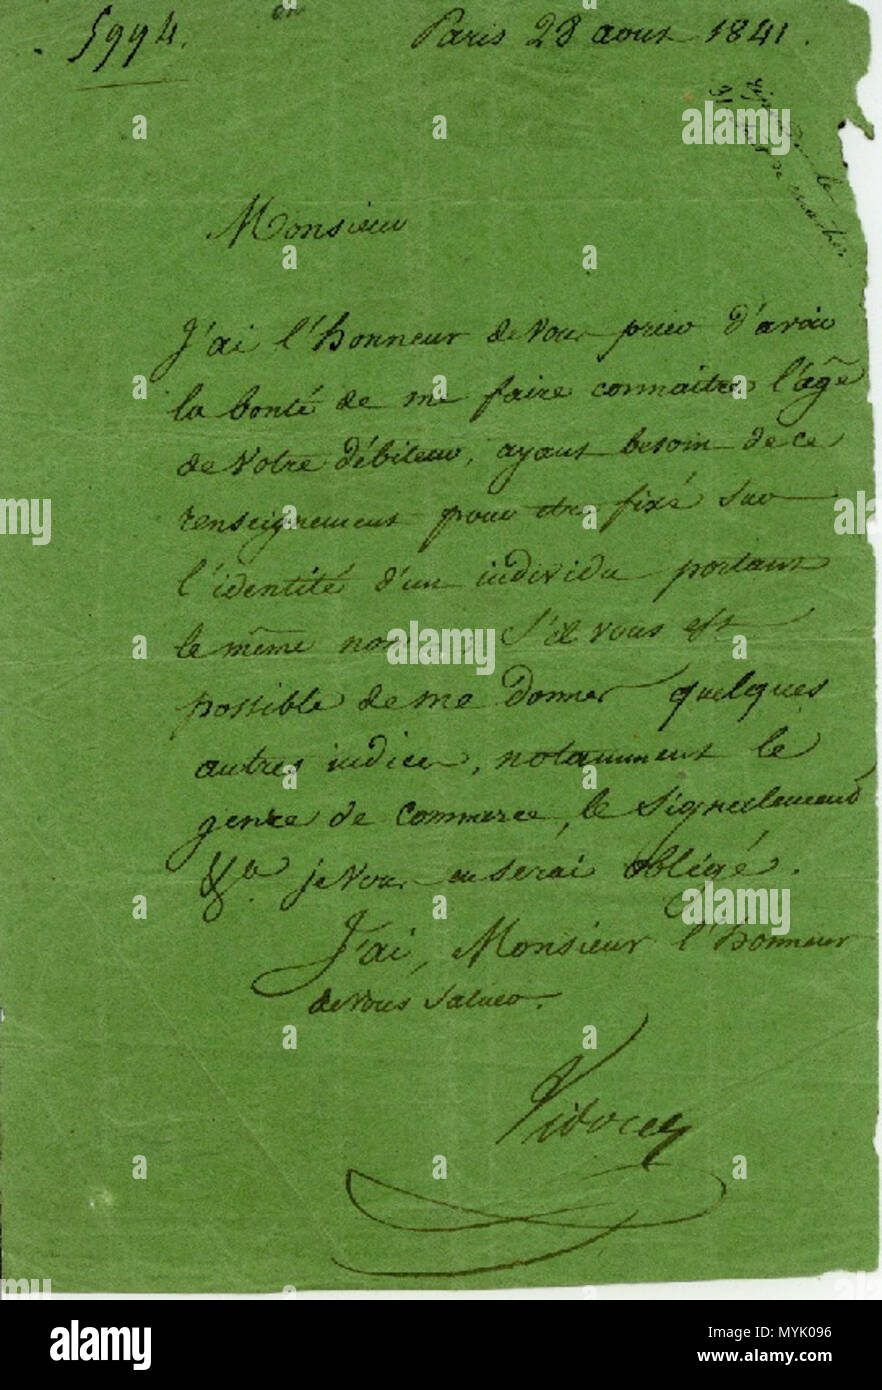 5994.
Paris 28 aout 1841.
31
le
Monsieur
J'ai l'honneur de vous prier d'avoir
la bonté de me faire connaitre l'âge
de votre débiteur, ayant besoin de ce
renseignement pour être fixé sur
l'identité d'un individu portant
le même nom, S'il vous est
possible de me donner quelques
autres indices, notamment le
genre de commerce, le signalement
&a. je vous en serai obligé.
J'ai, Monsieur l'honneur
de vous saluer.
Vidocq
alamy
alamy stock photo
MYK096
www.alamy.com